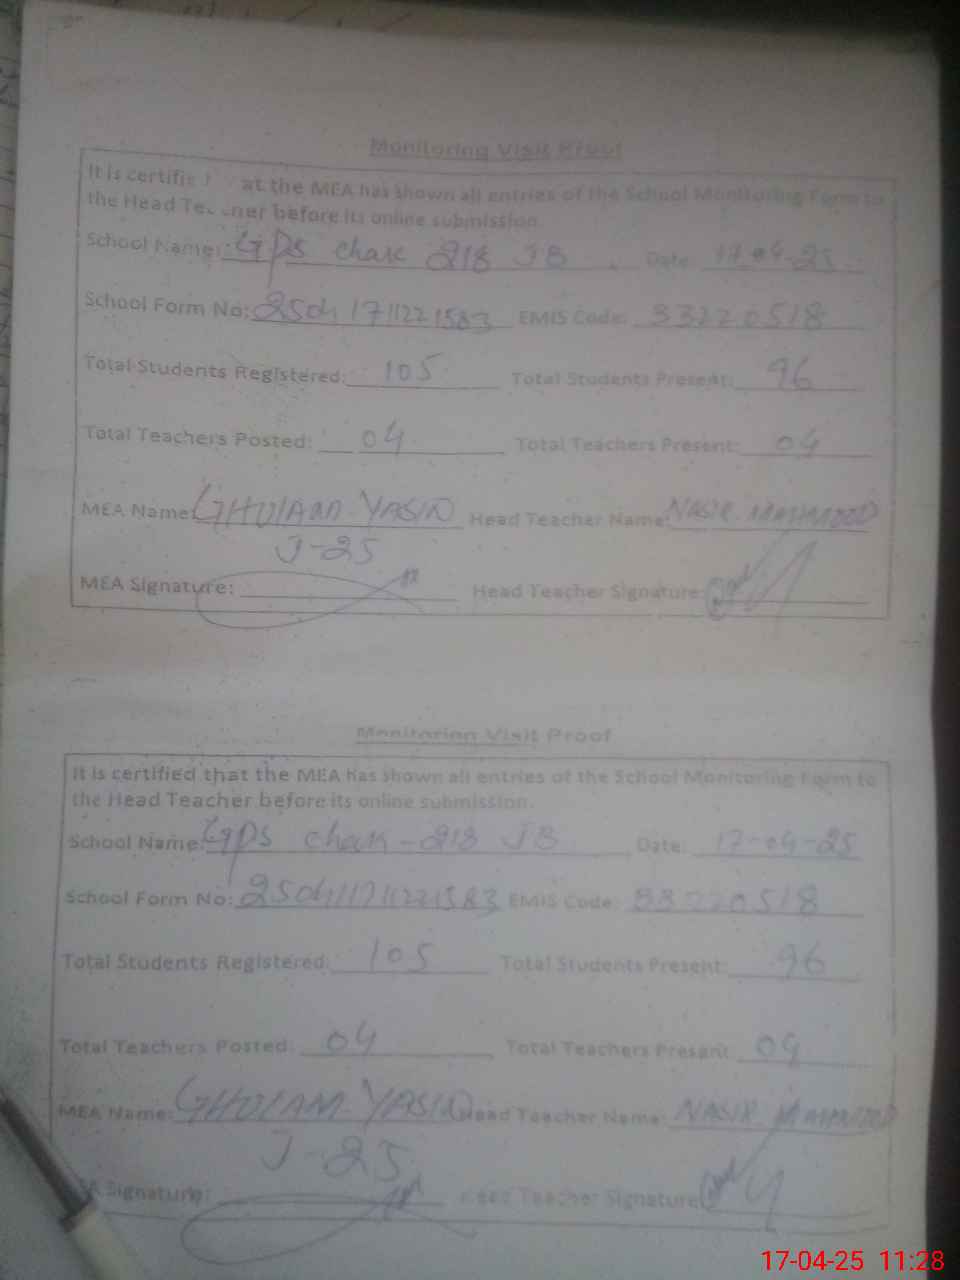 Monitoring Visit Proof
It is certifie at the MEA has shown all entries of the School Monitoring Form to
the Head Te ner before its online submission
School Name: GPS chak 218 JB Date: 17-04-25
School Form No: 2504171122 1583 EMIS Code: 33220518
Total Students Registered: 105 Total Students Present: 96
Total Teachers Posted: 04 Total Teachers Present: 04
MEA Name: GHULAM YASIN Head Teacher Name: NASIR MAHMOOD
J-25
MEA Signature: Head Teacher Signature:
Monitoring Visit Proof
It is certified that the MEA has shown all entries of the School Monitoring Form to
the Head Teacher before its online submission.
School Name: GPS chak - 218 JB Date: 17-04-25
School Form No: 25041711221583 EMIS Code: 33220518
Total Students Registered: 105 Total Students Present: 96
Total Teachers Posted: 04 Total Teachers Present: 04
MEA Name: GHULAM YASIN Head Teacher Name: NASIR MAHMOOD
J-25
EA Signature: Head Teacher Signature:
17-04-25 11:28